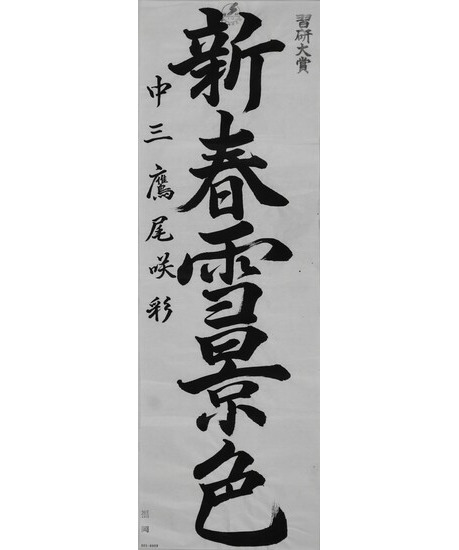 習研大賞
新春雪景色
中三 鷹尾咲彩